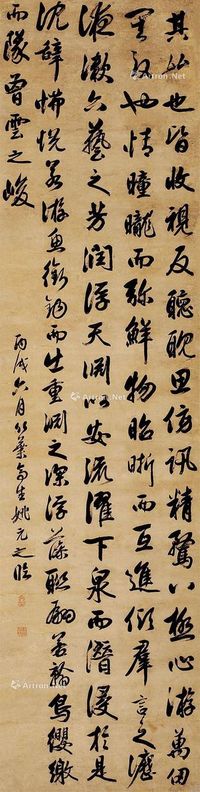 其始也皆收視反聽耽思傍訊精騖八極心游萬仞
其致也情曈曨而彌鮮物昭晣而互進傾羣言之瀝
液漱六藝之芳潤浮天淵以安流濯下泉而潛浸於是
沈辭怫悅若游魚銜鉤而出重淵之深浮藻聯翩若翰鳥纓繳
而隊曾雲之峻
丙戌六月竹葉亭生姚元之臨